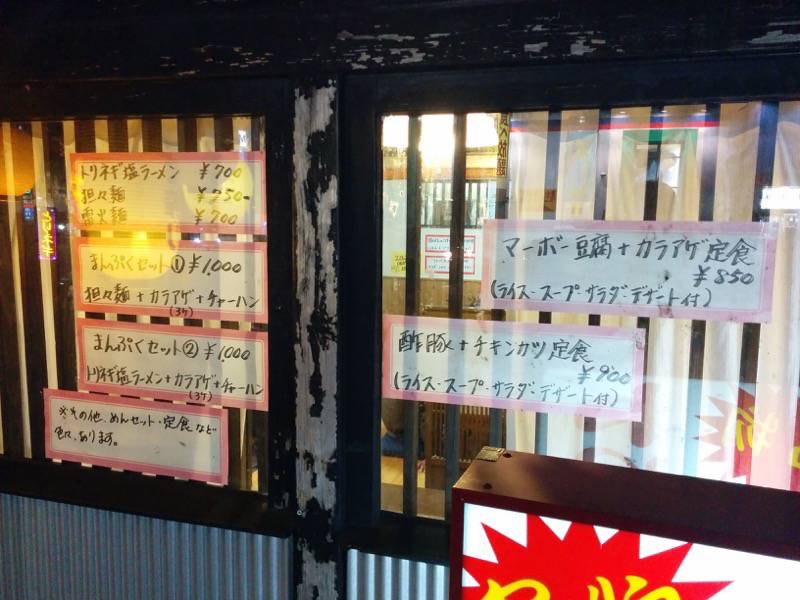 トリネギ塩ラーメン ￥700
担々麺 ￥750-
雷火麺 ￥700
まんぷくセット① ￥1,000
担々麺 + カラアゲ + チャーハン
(3ケ)
まんぷくセット② ￥1,000
トリネギ塩ラーメン + カラアゲ + チャーハン
(3ケ)
※その他、めんセット・定食など
色々、あります。
マーボー豆腐 + カラアゲ定食
￥850
(ライス・スープ・サラダ・デザート付)
酢豚 + チキンカツ定食
￥900
(ライス・スープ・サラダ・デザート付)